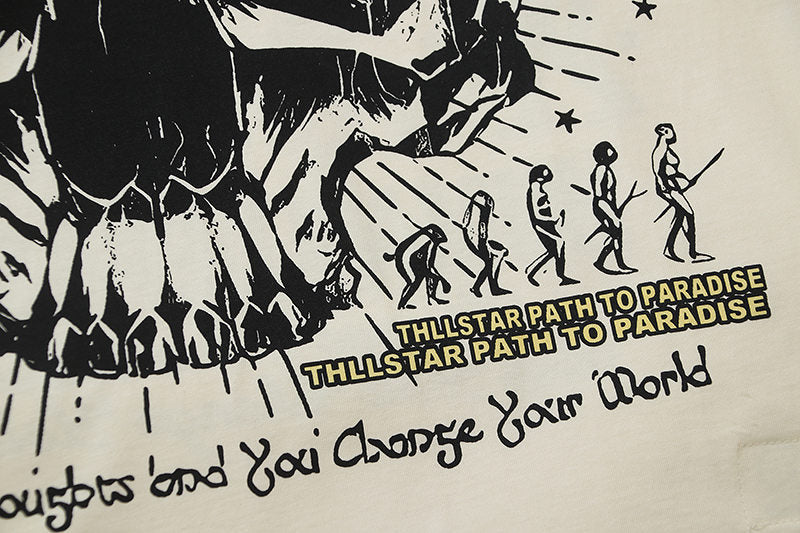 THLLSTAR PATH TO PARADISE
THLLSTAR PATH TO PARADISE
and You Change Your World